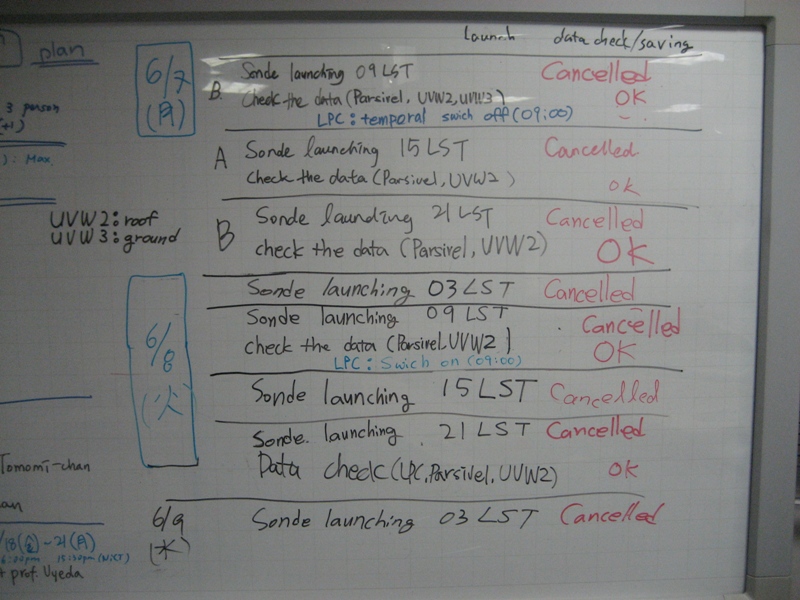 plan
launch data check/saving
3 person
(+1)
): Max.
UVW2: roof
UVW3: ground
6/7
(月)
Sonde launching 09 LST Cancelled
B. Check the data (Parsivel, UVW2, UVW3) OK
LPC: temporal swich off (09:00)
A Sonde launching 15 LST Cancelled
check the data (Parsivel, UVW2) ok
B Sonde launding 21 LST Cancelled
check the data (Parsivel, UVW2) OK
Sonde launching 03 LST Cancelled
6/8
(火)
Sonde launching 09 LST Cancelled
check the data (Parsivel, UVW2) OK
LPC: Swich on (09:00)
Sonde launching 15 LST Cancelled
Sonde. launching 21 LST Cancelled
Data check (LPC, Parsivel, UVW2) OK
6/9
(水)
Sonde launching 03 LST Cancelled
Tomomi-chan
an
/18 ~21(月)
prof. Uyeda